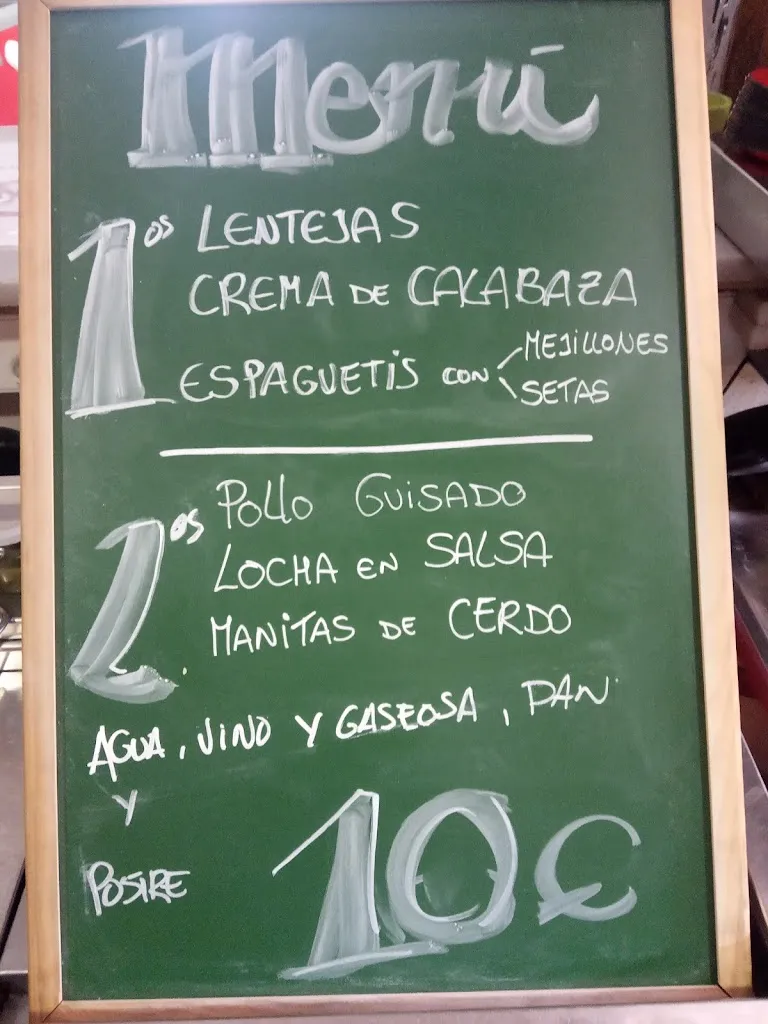 Menú
1os LENTEJAS
CREMA DE CALABAZA
ESPAGUETIS CON MEJILLONES
SETAS
2os POLLO GUISADO
LOCHA EN SALSA
MANITAS DE CERDO
AGUA, VINO Y GASEOSA, PAN
Y
POSTRE
10€